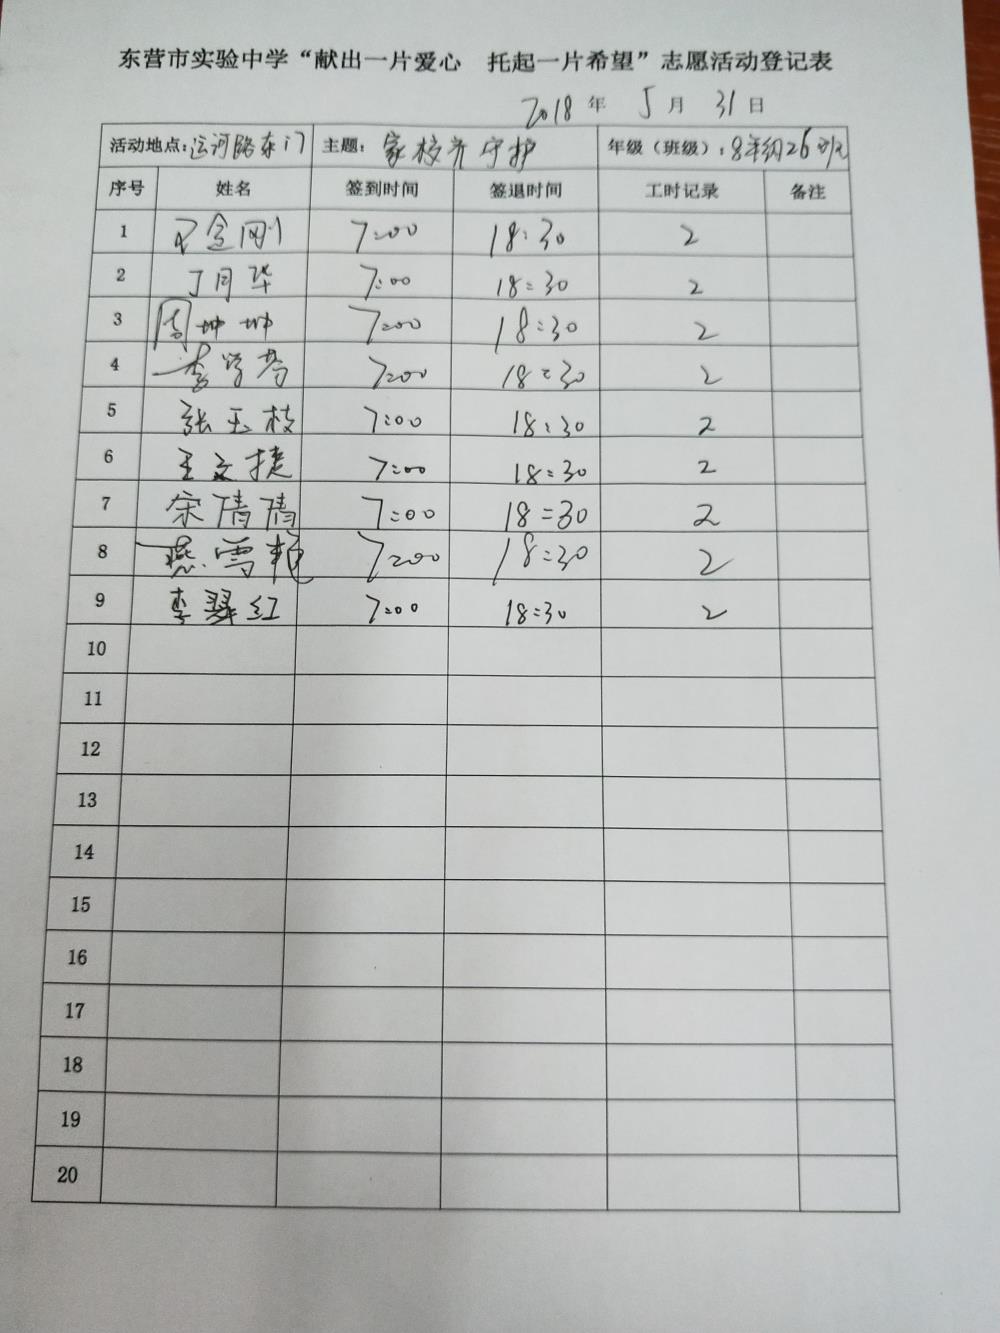 东营市实验中学“献出一片爱心 托起一片希望”志愿活动登记表
2018 年 5 月 31 日
活动地点：运河路东门 主题：家校齐守护 年级（班级）：8年级26班
序号 姓名 签到时间 签退时间 工时记录 备注
1 金刚 7:00 18:30 2
2 丁月华 7:00 18:30 2
3 周坤坤 7:00 18:30 2
4 李学芳 7:00 18:30 2
5 张玉枝 7:00 18:30 2
6 王文捷 7:00 18:30 2
7 宋倩倩 7:00 18:30 2
8 燕雪艳 7:00 18:30 2
9 李翠红 7:00 18:30 2
10
11
12
13
14
15
16
17
18
19
20